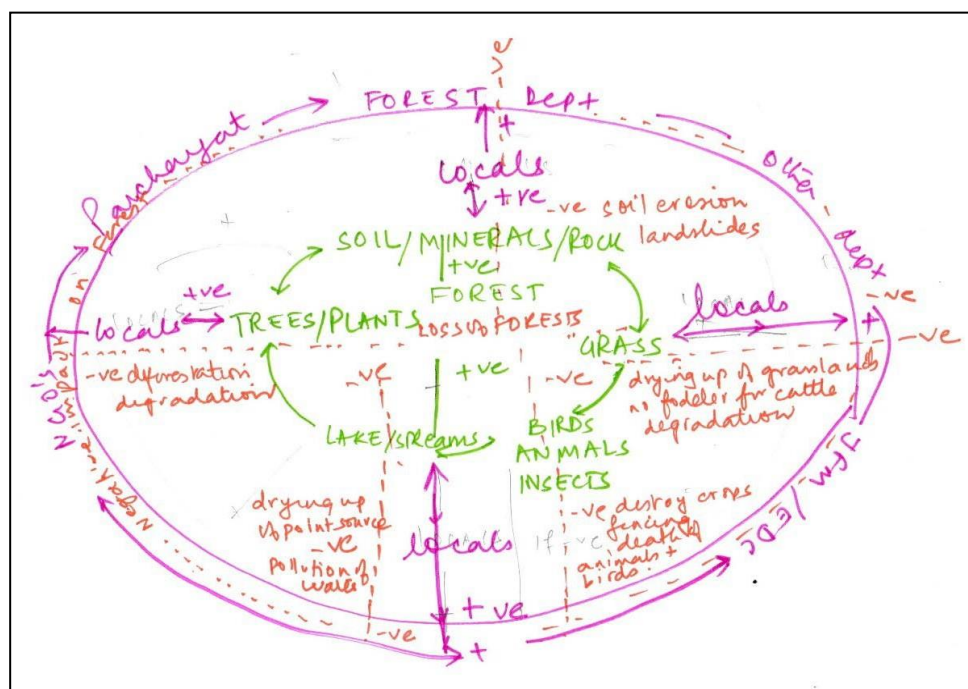 -ve
FOREST Dept
Panchayat
+
locals
+ve
other - dept
-ve soil erosion
landslides
SOIL/MINERALS/ROCK
+ve
FOREST
+ve
locals
TREES/PLANTS
LOSS OF FORESTS
GRASS
locals
+
-ve
-ve
-ve deforestation
degradation
-ve
+ve
-ve
drying up of grasslands
no fodder for cattle
degradation
LAKE/streams
BIRDS
ANIMALS
INSECTS
NGO's
Negative impact on Forest
JFM/EDC
drying up
of point source
-ve
pollution of
water
locals
if -ve
-ve destroy crops
fencing
death of
animals +
birds
+ ve
-ve
+